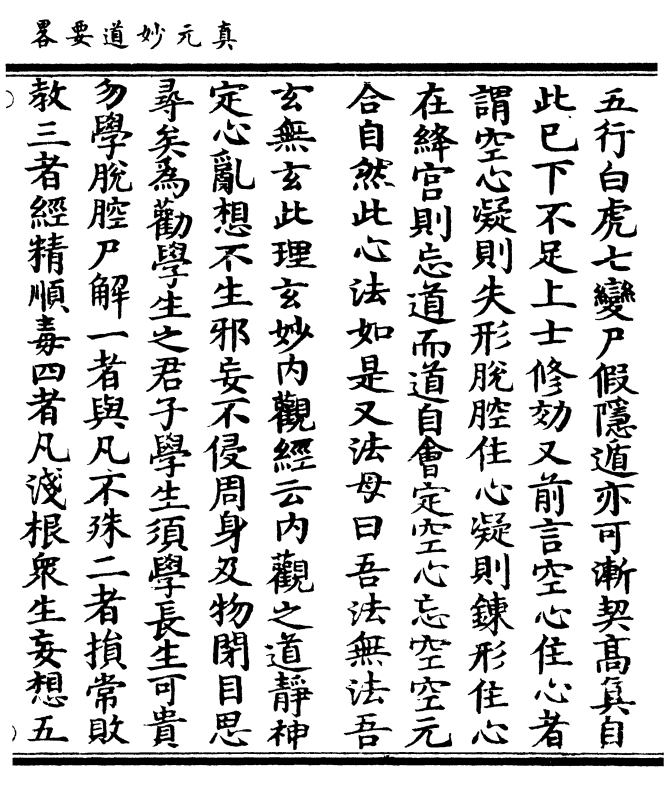 真元妙道要畧
五行白虎七變尸假隱遁亦可漸契髙眞自
此已下不足上士修効又前言空心住心者
謂空心凝則失形脫腔住心凝則鍊形住心
在絳宫則忘道而道自會定空心忘空空元
合自然此心法如是又法母曰吾法無法吾
玄無玄此理玄妙内觀經云内觀之道静神
定心亂想不生邪妄不侵周身及物閉目思
尋矣為勸學生之君子學生須學長生可貴
勿學脫腔尸解一者與凡不殊二者損常敗
教三者經精順毒四者凡淺根衆生妄想五